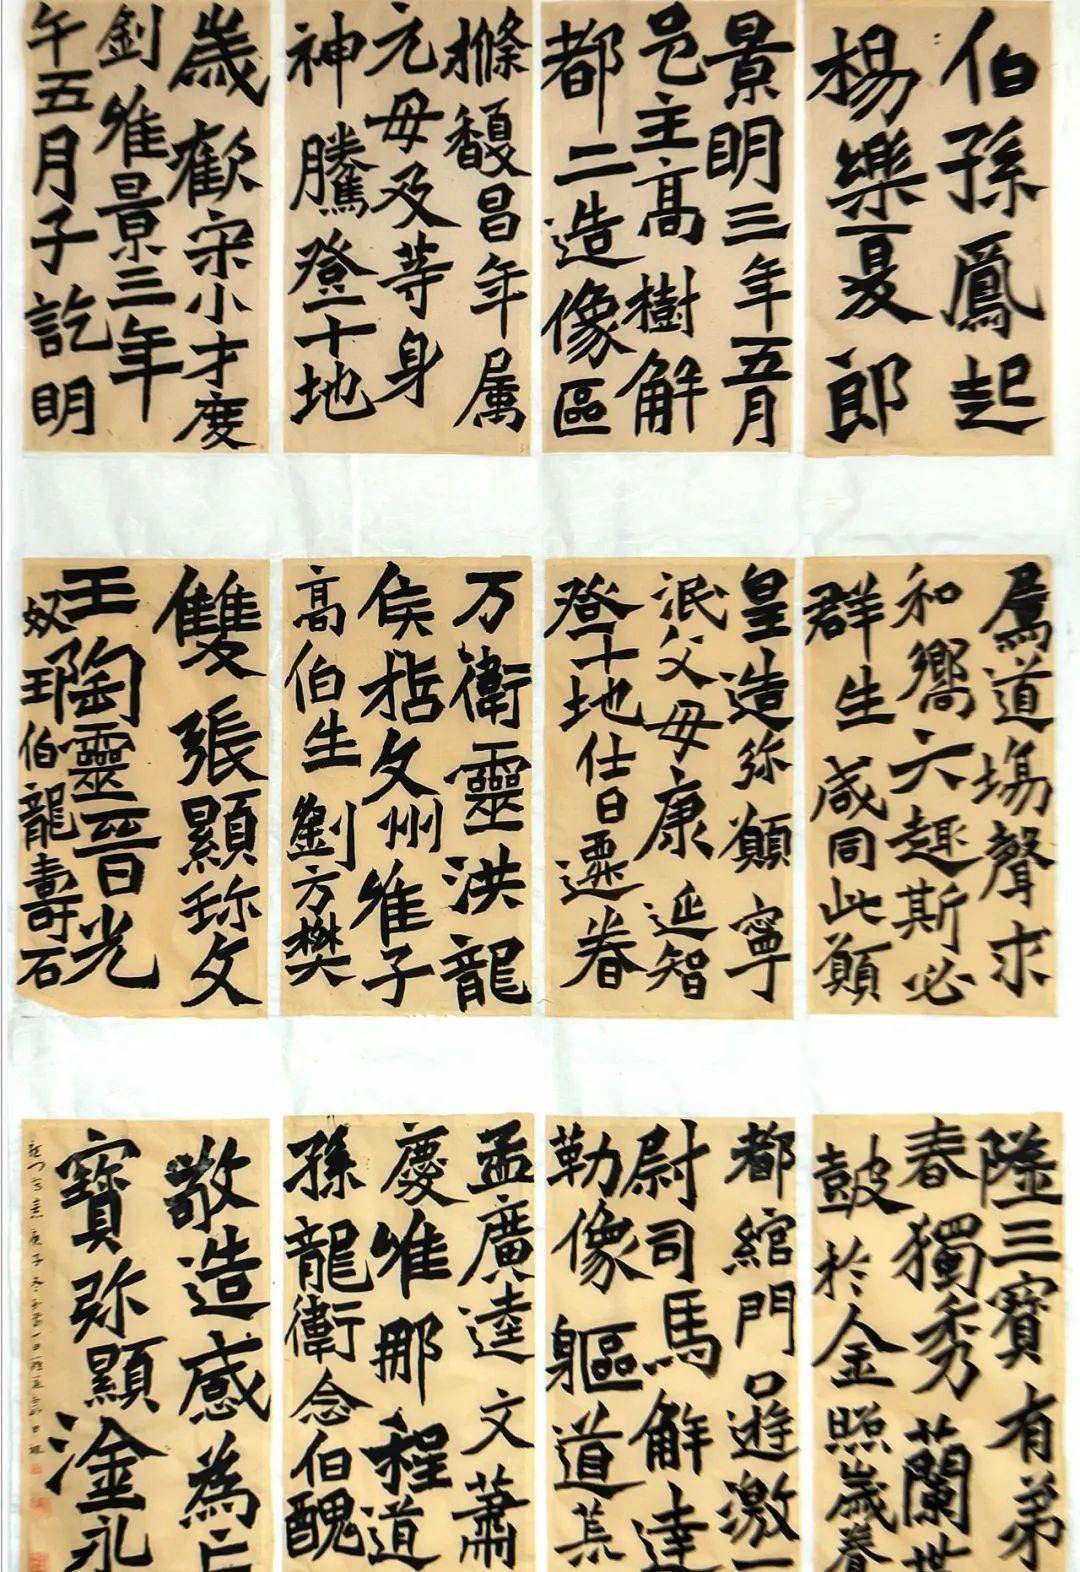 伯孫鳳起
楊樂夏郎
景明三年五月
邑主高樹解
都二造像區
像馥昌年属
元母及等身
神騰登十地
歲歡宋小才慶
劉雅景三年
午五月子訖明
属道場聲求
和嚮六趣斯必
群生咸同此願
皇造弥顛寧
泯父母康延智
登十地仕日遷眷
万衛靈洪龍
侯括文州雅子
高伯生劉方樊
雙張顯珎文
王陶靈晉光
奴珎伯龍壽石
隆三寶有弟
春獨秀蘭世
鼓於金照歲眷
都綰門遊激一
尉司馬解逹
勒像軀道其
孟廣逵文蕭
慶唯那程道
孫龍衛念伯醜
敬造感為
寶弥顯淦永